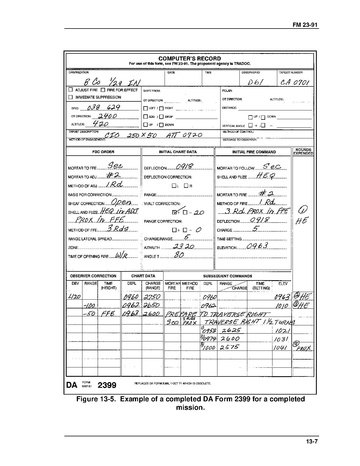 FM 23-91
COMPUTER'S RECORD
For use of this form, see FM 23-91. The proponent agency is TRADOC.
ORGANIZATION DATE TIME OBSERVER ID TARGET NUMBER
B Co 1/29 IN D61 CA 0701
ADJUST FIRE FIRE FOR EFFECT
IMMEDIATE SUPPRESSION
GRID: 038 629
OT DIRECTION: 2400
ALTITUDE: 420
SHIFT FROM:
OT DIRECTION: ALTITUDE:
LEFT / RIGHT
ADD / DROP
UP / DOWN
POLAR:
OT DIRECTION: ALTITUDE:
DISTANCE:
UP / DOWN
VERTICAL ANGLE
TARGET DESCRIPTION CIO 250 X 50 ATT 0720
METHOD OF ENGAGEMENT
METHOD OF CONTROL:
MESSAGE TO OBSERVER:
FDC ORDER INITIAL CHART DATA INITIAL FIRE COMMAND ROUNDS EXPENDED
MORTAR TO FFE: Sec DEFLECTION: 0918 MORTAR TO FOLLOW: Sec
MORTAR TO ADJ: #2 DEFLECTION CORRECTION: SHELL AND FUZE: HEQ
METHOD OF ADJ: 1 Rd L R
BASIS FOR CORRECTION: RANGE: MORTAR TO FIRE: #2
SHEAF CORRECTION: Open VI/ALT CORRECTION: METHOD OF FIRE: 1 Rd
SHELL AND FUZE: HEQ in ADJ - 20 3 Rd Prox in FFE 1
Prox in FFE RANGE CORRECTION: DEFLECTION: 0918 HE
METHOD OF FFE: 3 Rds - 0 CHARGE: 5
RANGE LATERAL SPREAD: CHARGE/RANGE: 5 TIME SETTING:
ZONE: AZIMUTH: 2320 ELEVATION: 0963
TIME OF OPENING FIRE: W/R ANGLE T: 80
OBSERVER CORRECTION CHART DATA SUBSEQUENT COMMANDS
DEV RANGE TIME (HEIGHT) DEFL CHARGE (RANGE) MORTAR FIRE METHOD FIRE DEFL RANGE CHARGE TIME (SETTING) ELEV
0960 2750 0960 0963 HE
-100 0962 2650 0962 1010 HE
-50 FFE 0963 2600 PREPARE TO TRAVERSE RIGHT
TRAVERSE RIGHT 1½ TURNS
0958 2625 1021
0979 2600 1031
1000 2575 1041 PROX
DA FORM 2399 REPLACES DA FORM 2399, 1 OCT 71 WHICH IS OBSOLETE.
Figure 13-5. Example of a completed DA Form 2399 for a completed
mission.
13-7